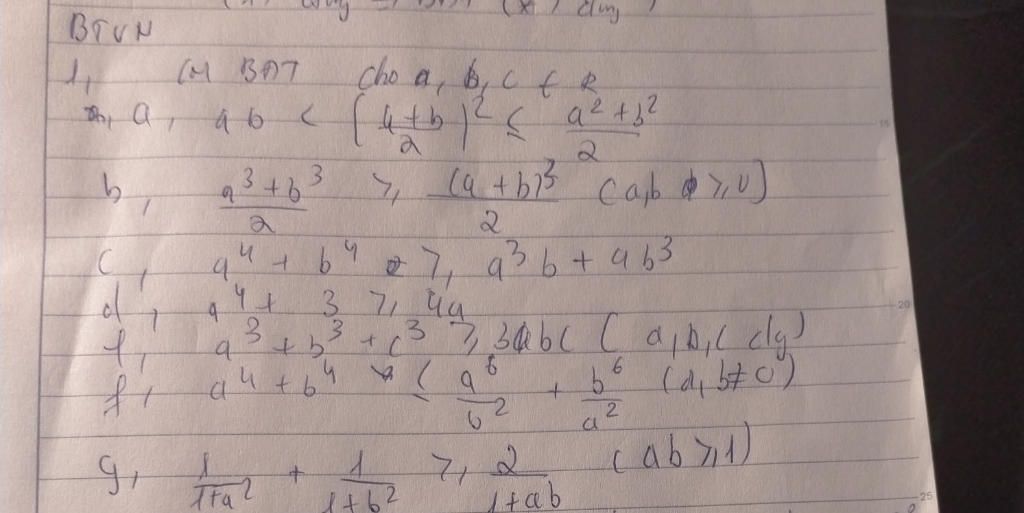 BTVN
1, CM BĐT Cho a, b, c ∈ R
a, ab < (a+b/2)² ≤ a²+b²/2
b, a³+b³/2 ≥, (a+b)³/2 (a,b ≥, 0)
c, a⁴ + b⁴ ≥, a³b + ab³
d, a⁴ + 3 ≥, 4a
f, a³ + b³ + c³ ≥, 3abc (a, b, c dg)
f, a⁴ + b⁴ ≤ a⁶/b² + b⁶/a² (a, b≠0)
g, 1/1+a² + 1/1+b² ≥, 2/1+ab (ab ≥, 1)